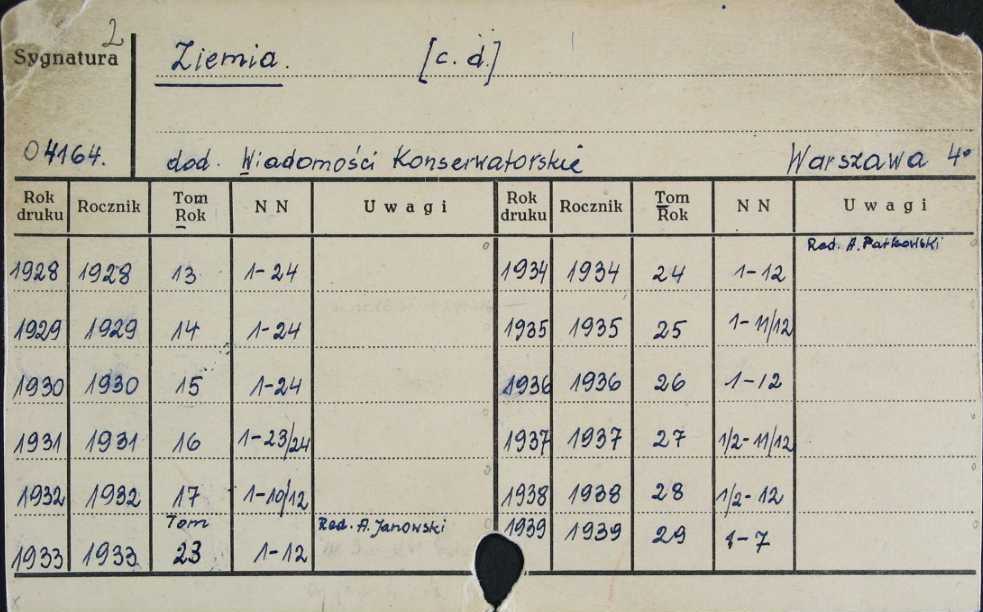 2
Sygnatura Ziemia. [c. d.]
04164. dod. Wiadomości Konserwatorskie Warszawa 4º
Rok druku Rocznik Tom Rok N N Uwagi Rok druku Rocznik Tom Rok N N Uwagi
Red. A. Patkowski
1928 1928 13 1-24 1934 1934 24 1-12
1929 1929 14 1-24 1935 1935 25 1-11/12
1930 1930 15 1-24 1936 1936 26 1-12
1931 1931 16 1-23/24 1937 1937 27 1/2-11/12
1932 1932 17 1-10/12 1938 1938 28 1/2-12
Tom Red. A. Janowski
1933 1933 23 1-12 1939 1939 29 1-7